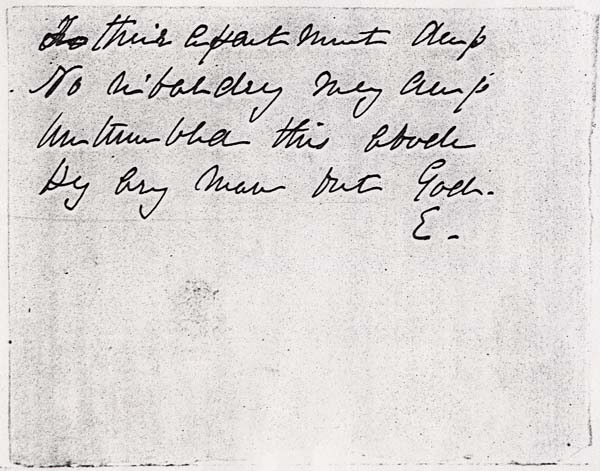 To their apartment deep
No ribaldry may creep
Untumbled this abode
By any man but God -
E -